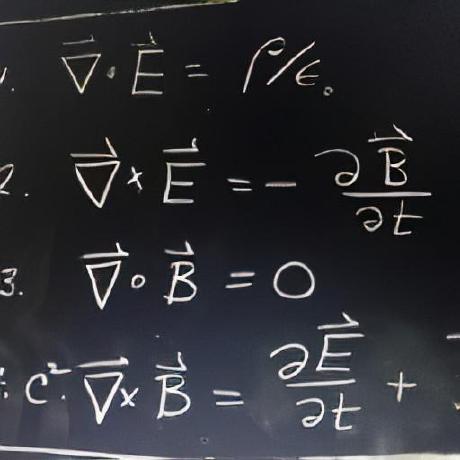 1. ∇⃗·E⃗ = ρ/ε₀
2. ∇⃗×E⃗ = - ∂B⃗/∂t
3. ∇⃗∘B⃗ = 0
c²·∇⃗×B⃗ = ∂E⃗/∂t +